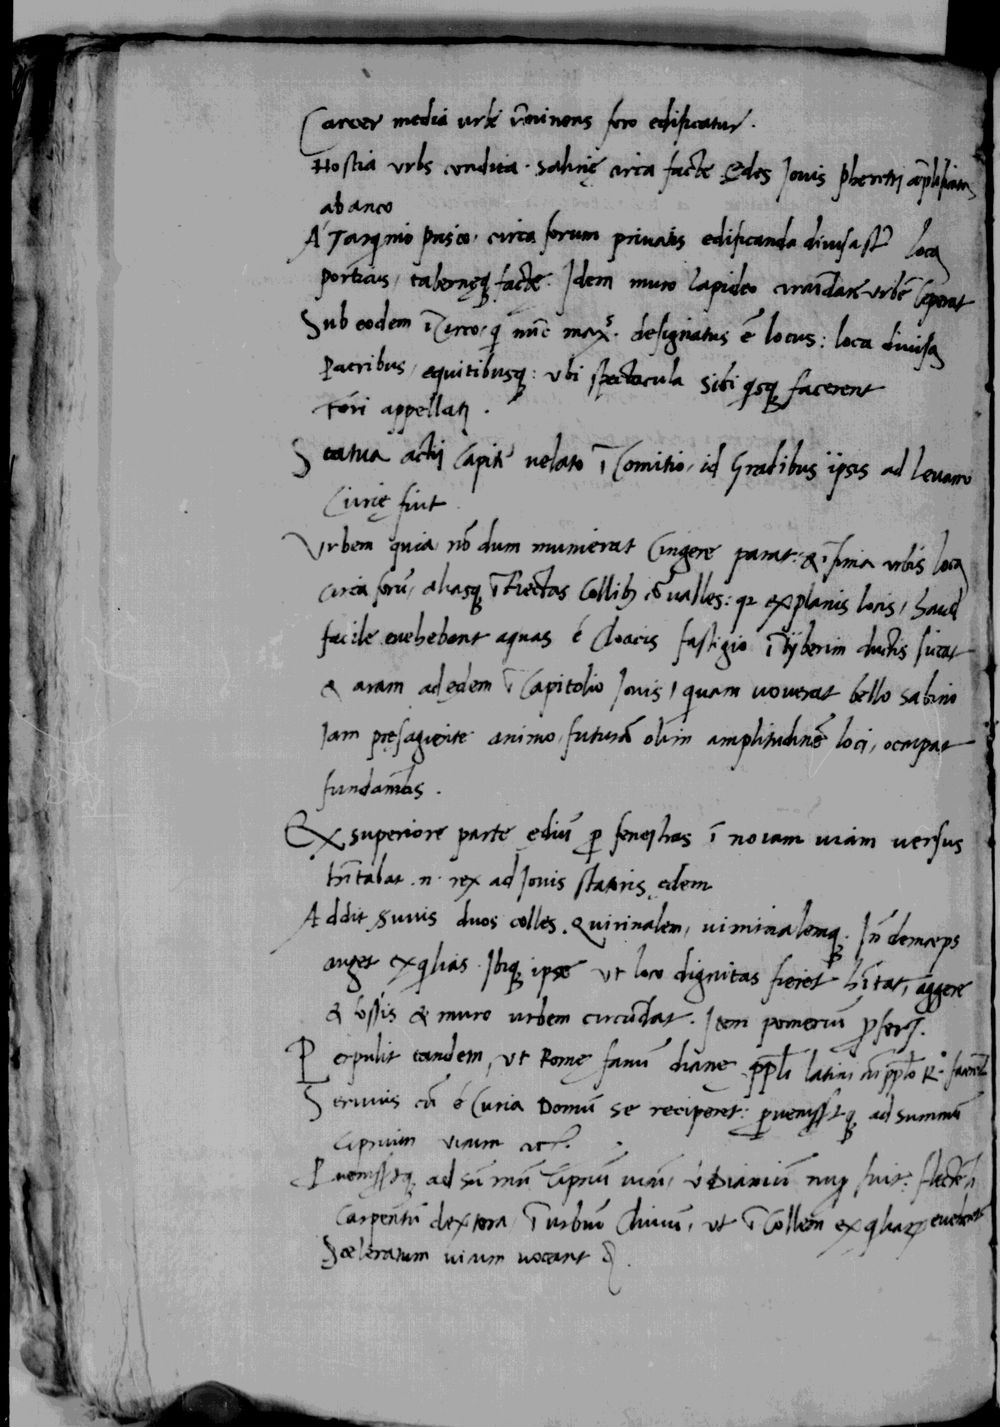 Carcer media urbi īminens foro edificatur.
Hostia urbs condita. Salinę circa factę Ędes Jovis Pheretri āplificata
ab anco
A Tarqnio prisco, circa forum privatis edificanda divisa sūt loca
porticus, tabernęq factę. Idem muro lapideo circūdare urbē ceperat
Sub eodem ī Circo, q nūc maxs. designatus ē locus: loca divisa
Patribus, equitibusq: ubi spectacula sibi qsq facerent
Fori appellati.
Statua actij capitē velato ī Comitio, id Gradibus ipsis ad levam
Curię fuit
Urbem quia nō dum munierat Cingere parat: & īfima urbis loca
circa forū, aliasq īteriectas collib9 cōvalles: q explanis locis, haud
facile evehebant aquas é cloacis fastigio ī tyberim ductis siccat
& aram ad edem ī Capitolio Jovis, quam voverat bello sabino
Iam pręsagiente animo, futurā olim amplitudinē loci, occupat
fundamētis.
Ex superiore parte ędiū p fenestras ī novam viam versus
hītabat .n. rex ad Jovis statoris ędem
Addit Suvis duos colles. Quirinalem, viminalemq. In deinceps
auget exqlias. Ibiq ipse ut loco dignitas fieret hītat, aggere
& fossis & muro urbem circūdat. Item pomeriū pfert.
Perpulit tandem, ut Romę fanū dianę ppli latini cū pplo R° facerēt
Servius cū é Curia Domū se reciperet: pvenissetq ad summū
Ciprium vicum
Pvenissetq ad sūmū Ciprium vicū, ubi Dianiū nup fuit: flectēti
Carpentū dextera, ī urbiū clivum, ut ī Collem exqliarū eveheret
Sceleratum vicum vocant